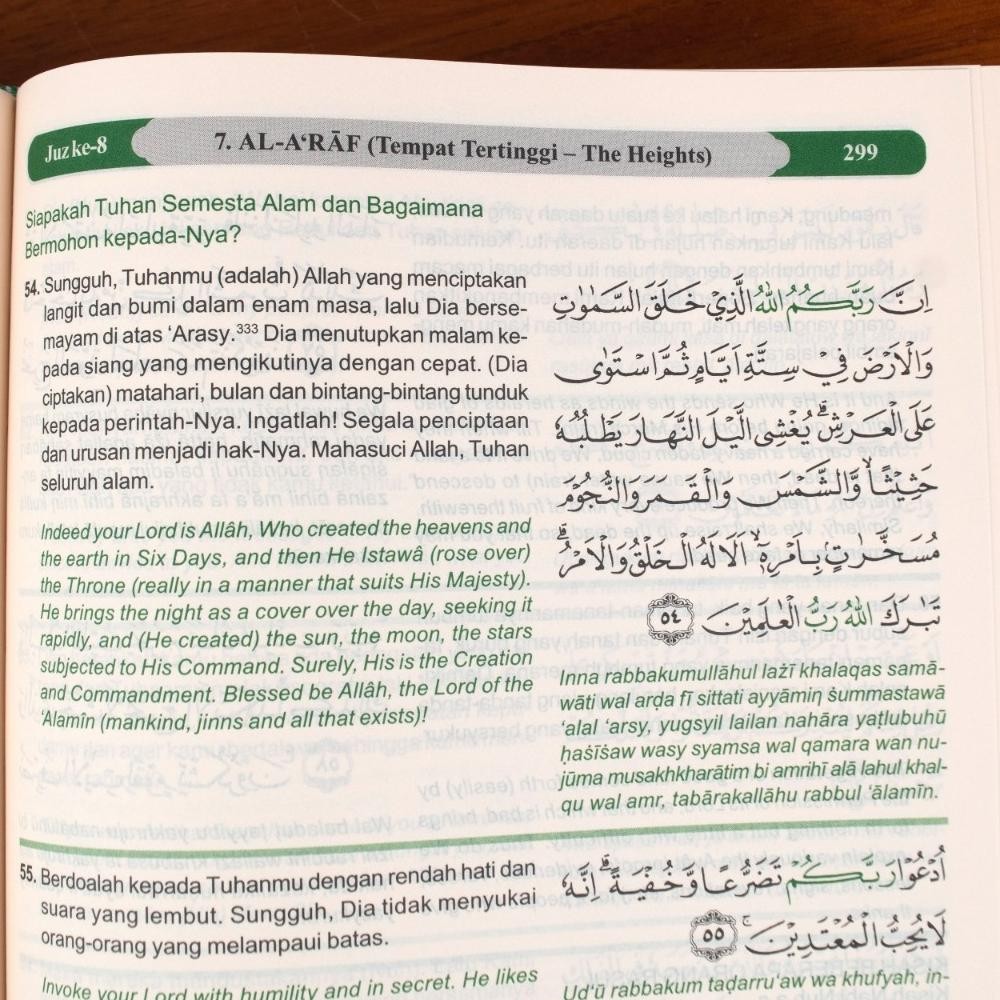 Juz ke-8
7. AL-A‘RĀF (Tempat Tertinggi – The Heights)
299
Siapakah Tuhan Semesta Alam dan Bagaimana
Bermohon kepada-Nya?
54. Sungguh, Tuhanmu (adalah) Allah yang menciptakan
langit dan bumi dalam enam masa, lalu Dia berse-
mayam di atas ‘Arasy.³³³ Dia menutupkan malam ke-
pada siang yang mengikutinya dengan cepat. (Dia
ciptakan) matahari, bulan dan bintang-bintang tunduk
kepada perintah-Nya. Ingatlah! Segala penciptaan
dan urusan menjadi hak-Nya. Mahasuci Allah, Tuhan
seluruh alam.
Indeed your Lord is Allâh, Who created the heavens and
the earth in Six Days, and then He Istawâ (rose over)
the Throne (really in a manner that suits His Majesty).
He brings the night as a cover over the day, seeking it
rapidly, and (He created) the sun, the moon, the stars
subjected to His Command. Surely, His is the Creation
and Commandment. Blessed be Allâh, the Lord of the
‘Alamîn (mankind, jinns and all that exists)!
اِنَّ رَبَّكُمُ اللّٰهُ الَّذِيْ خَلَقَ السَّمٰوٰتِ
وَالْاَرْضَ فِيْ سِتَّةِ اَيَّامٍ ثُمَّ اسْتَوٰى
عَلَى الْعَرْشِۗ يُغْشِى الَّيْلَ النَّهَارَ يَطْلُبُهٗ
حَثِيْثًاۙ وَّالشَّمْسَ وَالْقَمَرَ وَالنُّجُوْمَ
مُسَخَّرٰتٍۢ بِاَمْرِهٖٓ ۙاَلَا لَهُ الْخَلْقُ وَالْاَمْرُۗ
تَبٰرَكَ اللّٰهُ رَبُّ الْعٰلَمِيْنَ ٥٤
Inna rabbakumullāhul lażī khalaqas samā-
wāti wal arḍa fī sittati ayyāmiṅ ṡummastawā
‘alal ‘arsy, yugsyil lailan nahāra yaṭlubuhū
ḥaṡīṡaw wasy syamsa wal qamara wan nu-
jūma musakhkharātim bi amrihī alā lahul khal-
qu wal amr, tabārakallāhu rabbul ‘ālamīn.
55. Berdoalah kepada Tuhanmu dengan rendah hati dan
suara yang lembut. Sungguh, Dia tidak menyukai
orang-orang yang melampaui batas.
Invoke your Lord with humility and in secret. He likes
اُدْعُوْا رَبَّكُمْ تَضَرُّعًا وَّخُفْيَةًۗ اِنَّهٗ
لَا يُحِبُّ الْمُعْتَدِيْنَۚ ٥٥
Ud‘ū rabbakum taḍarru‘aw wa khufyah, in-